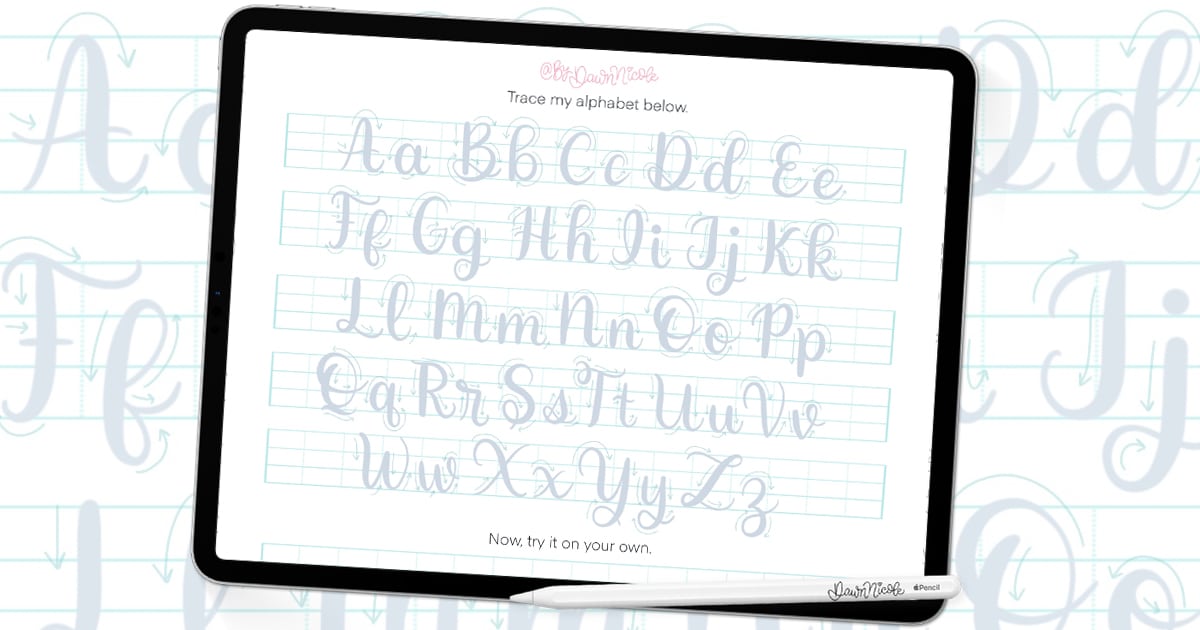 @ByDawnNicole
Trace my alphabet below.
Aa Bb Cc Dd Ee
Ff Gg Hh Ii Jj Kk
Ll Mm Nn Oo Pp
Qq Rr Ss Tt Uu Vv
Ww Xx Yy Zz
Now, try it on your own.
DawnNicole Pencil